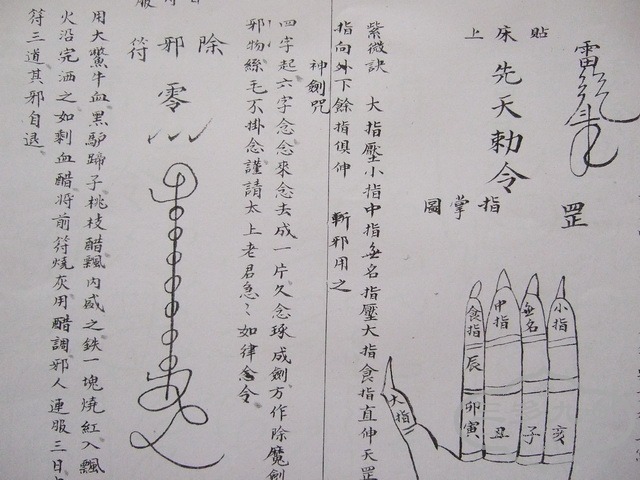 雷
罡
貼床上
先天勅令
指掌圖
小指
無名
中指
食指
大指
亥
子
丑
辰
卯寅
紫微訣 大指壓小指中指無名指壓大指食指直伸天罡
指向外下餘指俱伸 斬邪用之
神劍咒
四字起六字念念來念去成一片久念琢成劍方作除魔劍
邪物絲毛不掛念謹請太上老君急〻如律念令
除邪符
零
用大鱉牛血黑驢蹄子桃枝醋瓢內盛之鉄一塊燒紅入瓢
火沿完洒之如剩血醋將前符燒灰用醋調邪人連服三日
符三道其邪自退